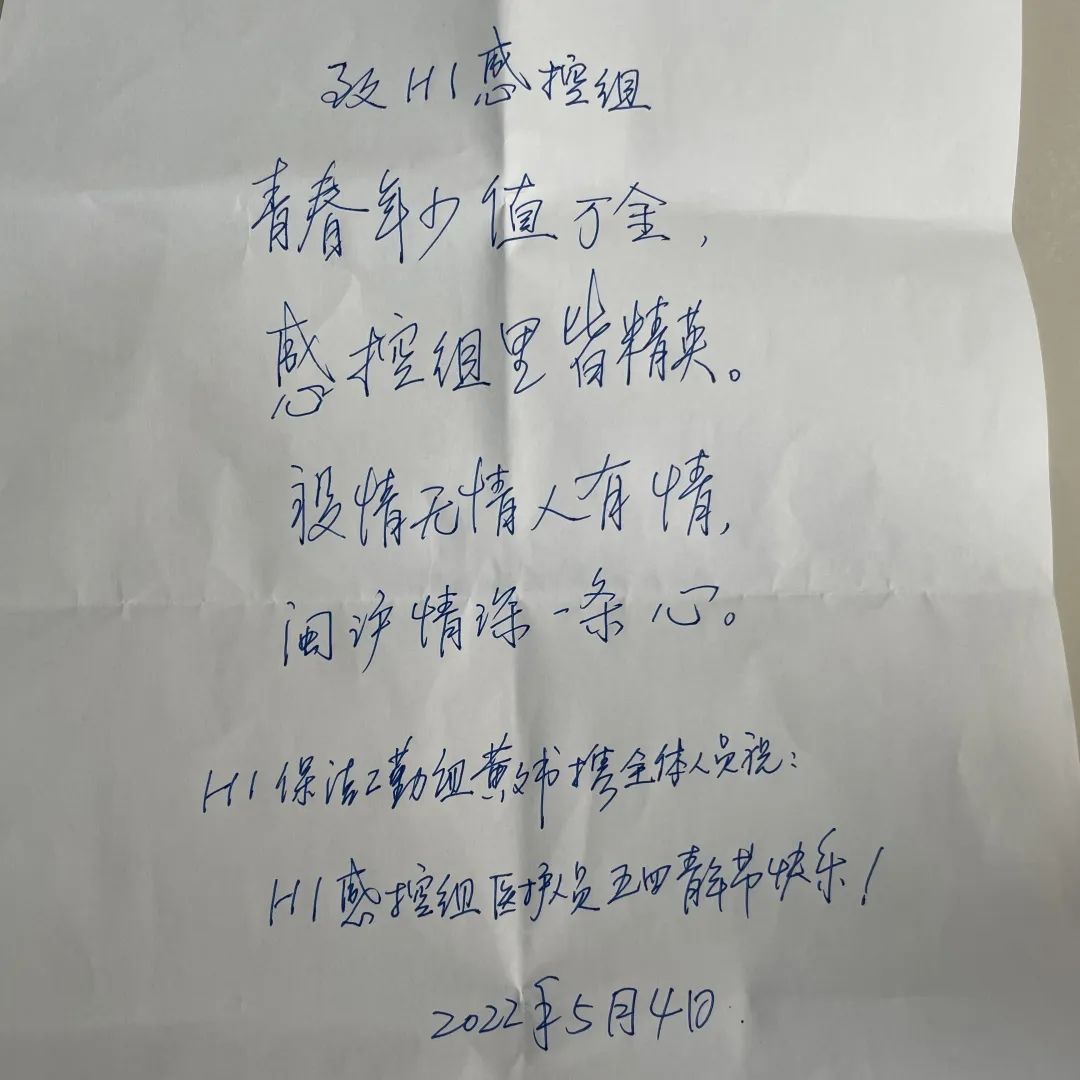 致H1感控组
青春年少值万金,
感控组里皆精英。
疫情无情人有情,
闽沪情深一条心。
H1保洁工勤组黄文书携全体人员祝:
H1感控组医护人员五四青年节快乐!
2022年5月4日.